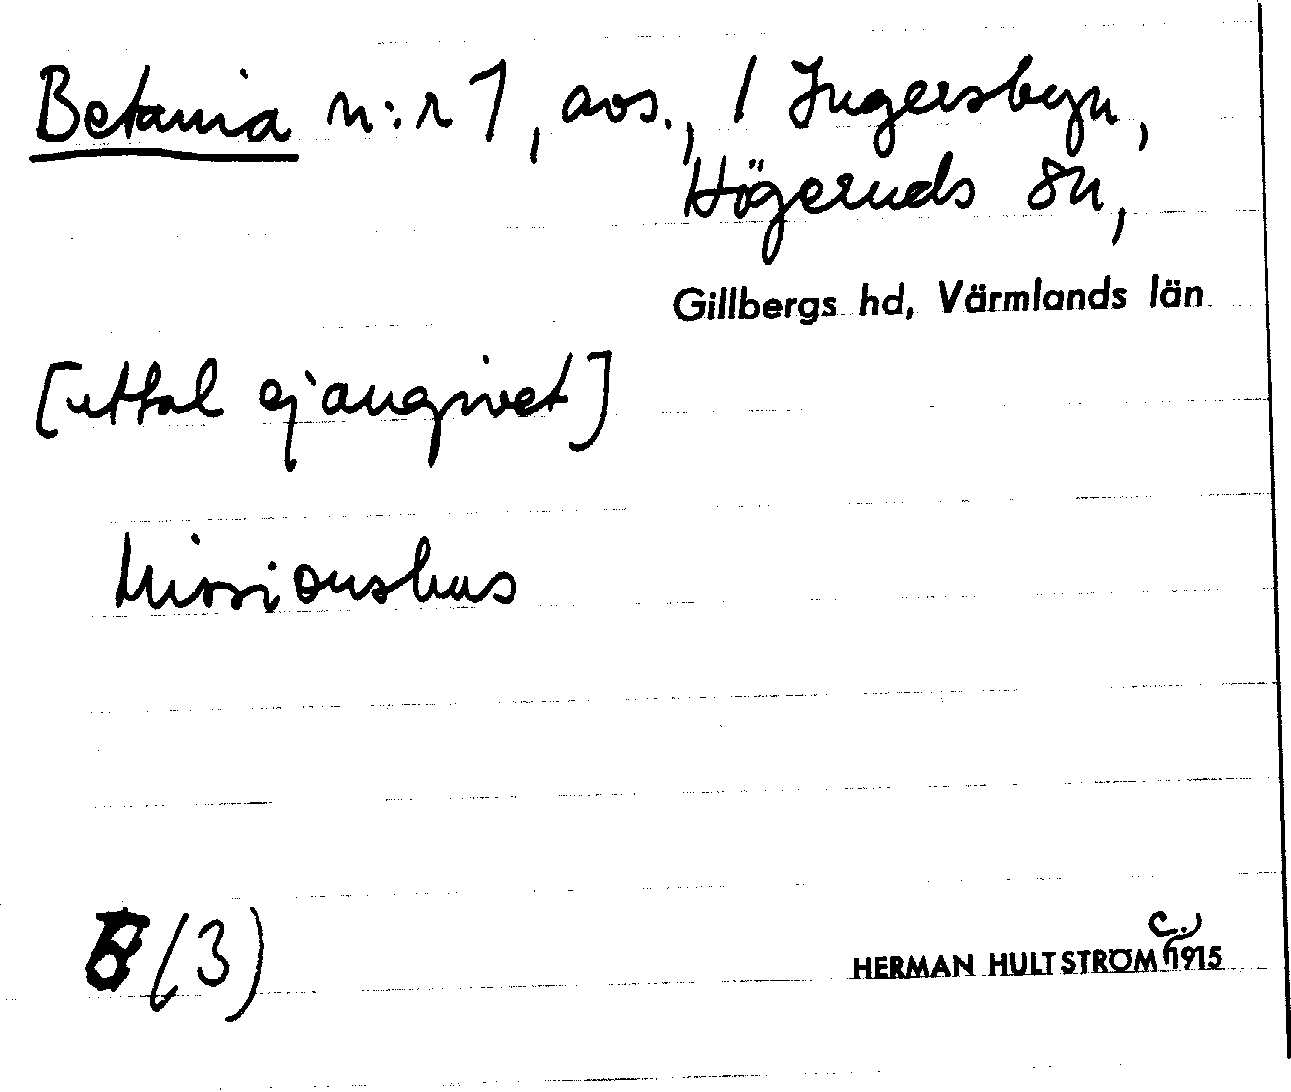 Betania n:r 1, avs., / Ingersbyn,
Högeruds sn,
Gillbergs hd, Värmlands län
[uttal ej angivet]
Missionshus
(3)
HERMAN HULTSTRÖM (c.) 1915